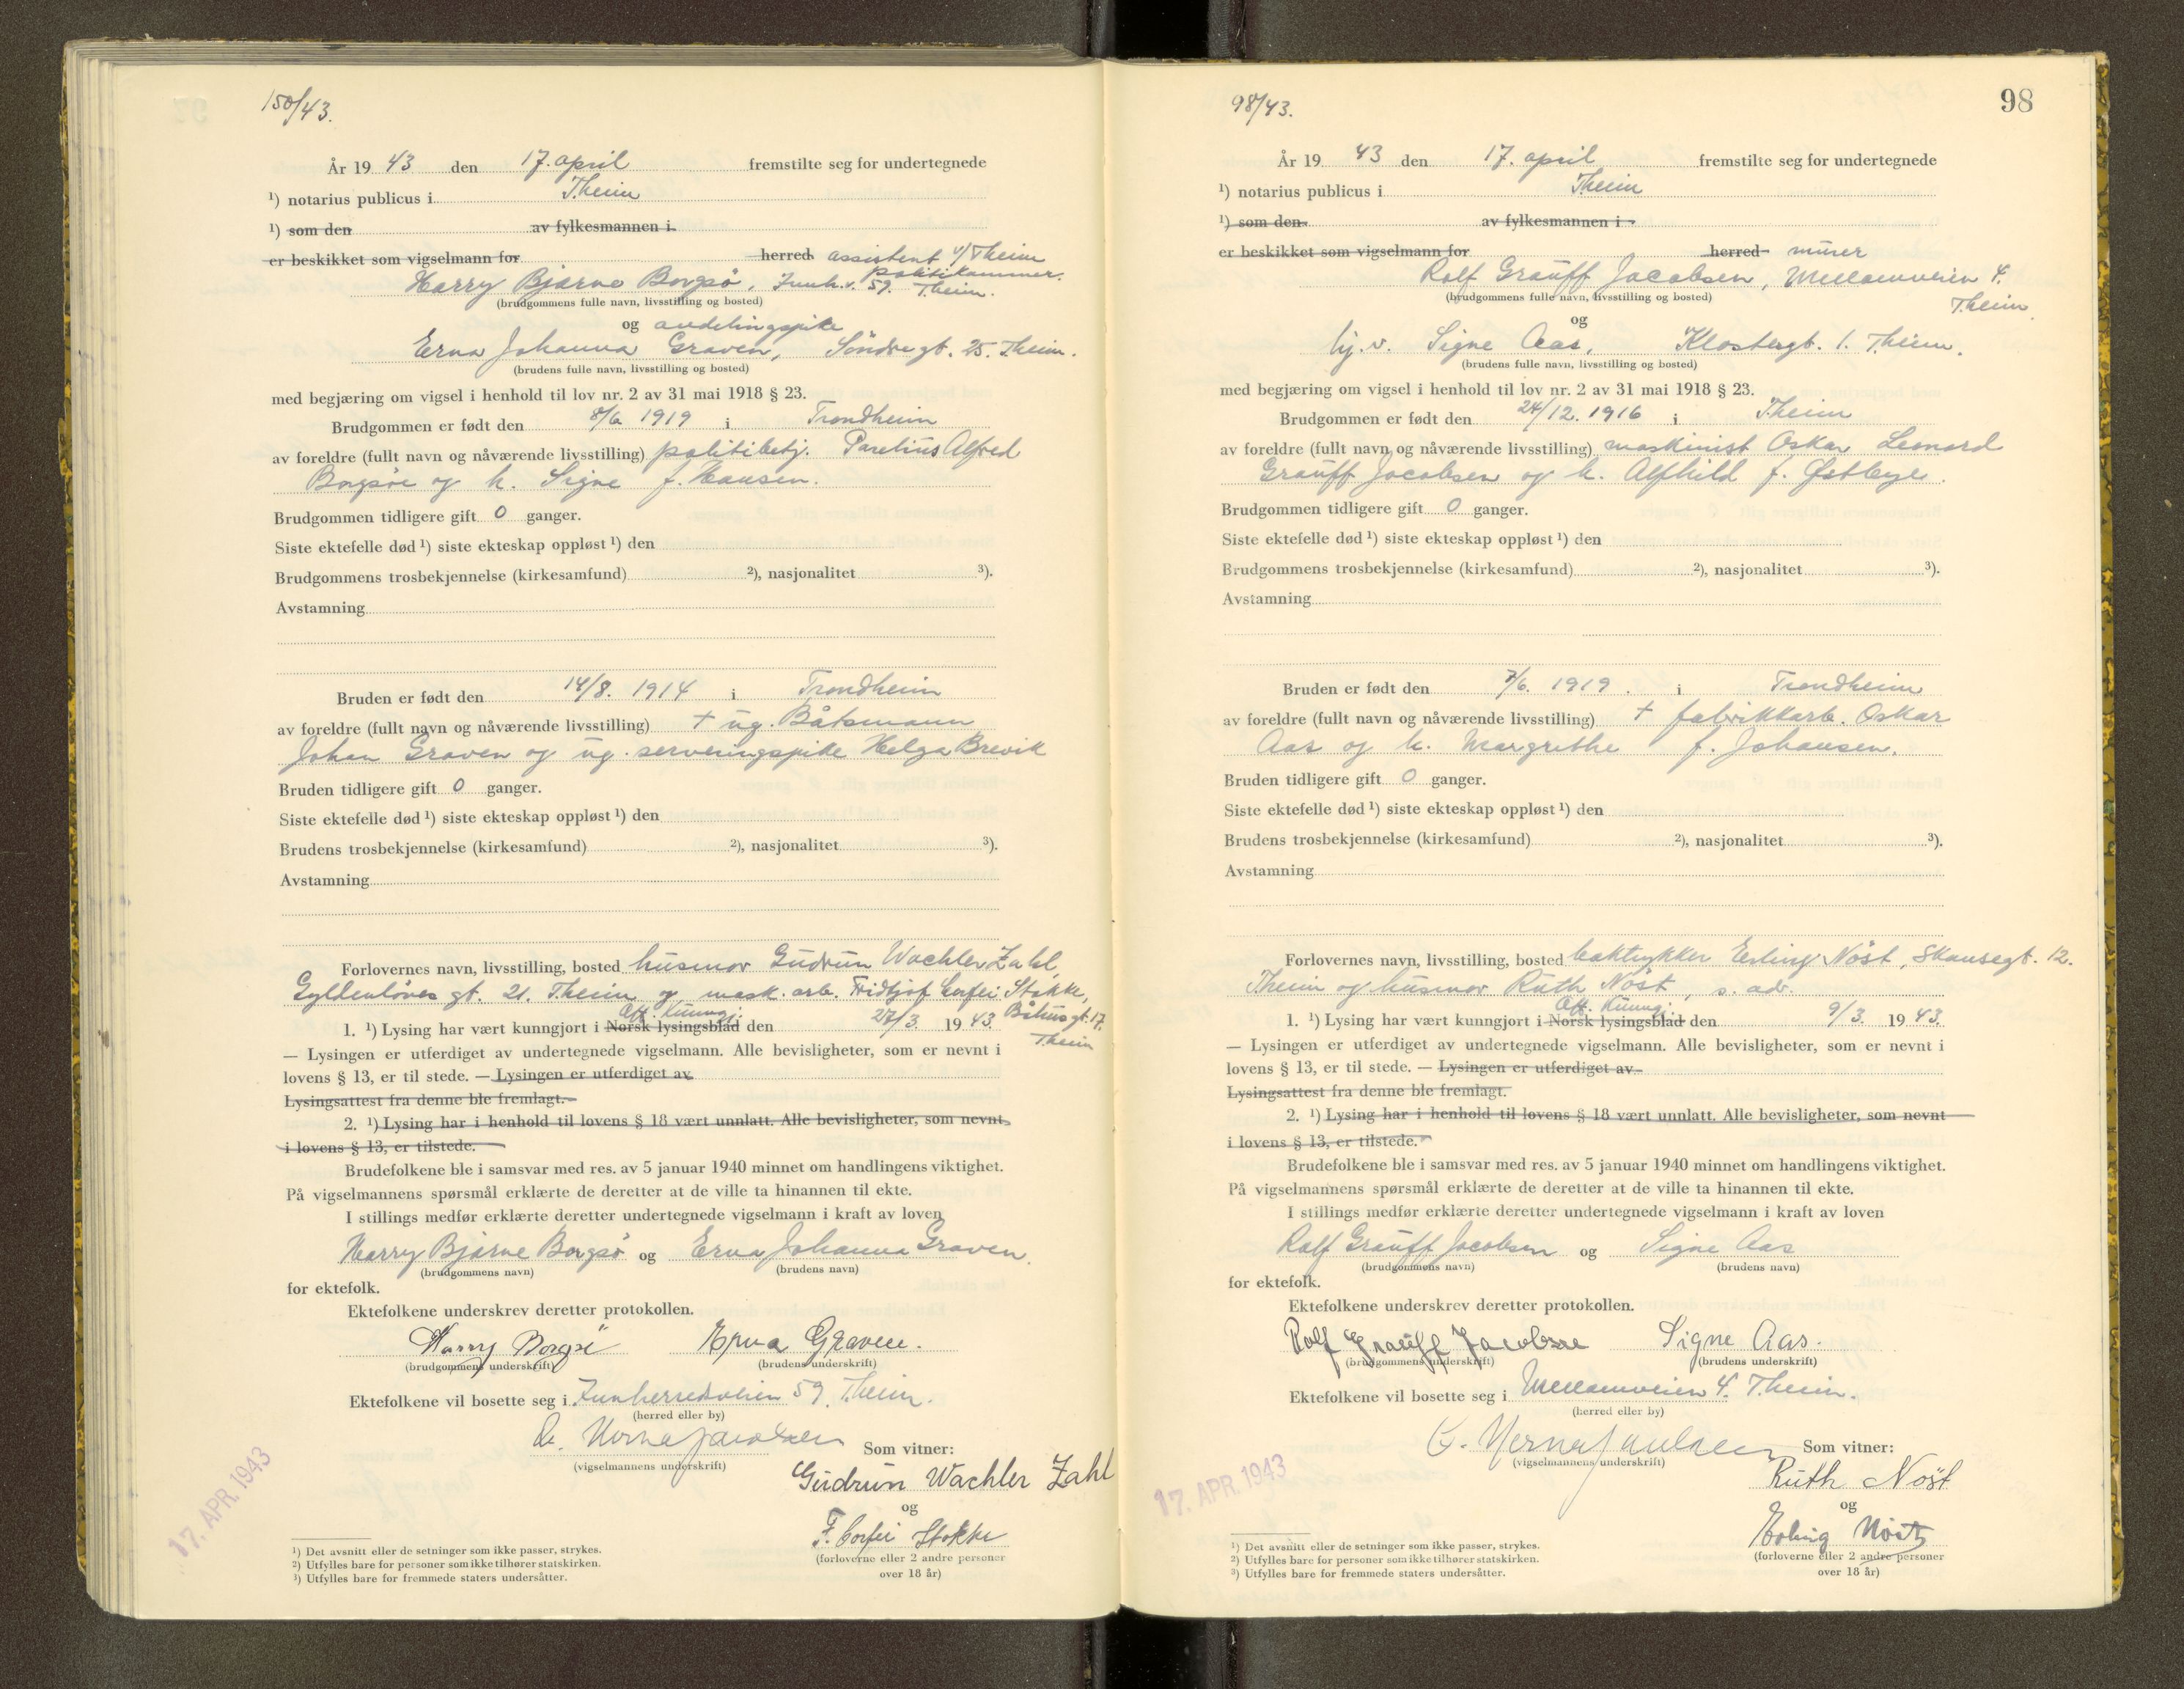 150/43.
År 19 43 den 17. april fremstilte seg for undertegnede
¹) notarius publicus i T.heim
¹) som den av fylkesmannen i
er beskikket som vigselmann for herred assistent v/T.heim
politikammer.
Harry Bjarne Borgsö, Innh.v. 59. T.heim.
(brudgommens fulle navn, livsstilling og bosted)
og avdelingspike
Erna Johanna Graven, Söndregt. 25. T.heim.
(brudens fulle navn, livsstilling og bosted)
med begjæring om vigsel i henhold til lov nr. 2 av 31 mai 1918 § 23.
Brudgommen er født den 8/6 1919 i Trondheim
av foreldre (fullt navn og nåværende livsstilling) politibetj. Parelius Alfred
Borgsöe og h. Signe f. Hansen.
Brudgommen tidligere gift 0 ganger.
Siste ektefelle død ¹) siste ekteskap oppløst ¹) den
Brudgommens trosbekjennelse (kirkesamfund) ²), nasjonalitet ³).
Avstamning
Bruden er født den 14/8. 1914 i Trondheim
av foreldre (fullt navn og nåværende livsstilling) + ug. Båtsmann
Johan Graven og ug. serveringspike Helga Brevik
Bruden tidligere gift 0 ganger.
Siste ektefelle død ¹) siste ekteskap oppløst ¹) den
Brudens trosbekjennelse (kirkesamfund) ²), nasjonalitet ³).
Avstamning
Forlovernes navn, livsstilling, bosted husmor Gudrun Wachler Zahl,
Gyldenlöves gt. 21. T.heim og mask. arb. Fridtjof Corfei Stokke,
Båhus gt. 17.
T.heim
Off. Kunngj.
1. ¹) Lysing har vært kunngjort i Norsk lysingsblad den 27/3. 19 43.
— Lysingen er utferdiget av undertegnede vigselmann. Alle bevisligheter, som er nevnt i
lovens § 13, er til stede. — Lysingen er utferdiget av
Lysingsattest fra denne ble fremlagt.
2. ¹) Lysing har i henhold til lovens § 18 vært unnlatt. Alle bevisligheter, som nevnt
i lovens § 13, er tilstede.
Brudefolkene ble i samsvar med res. av 5 januar 1940 minnet om handlingens viktighet.
På vigselmannens spørsmål erklærte de deretter at de ville ta hinannen til ekte.
I stillings medfør erklærte deretter undertegnede vigselmann i kraft av loven
Harry Bjarne Borgsö og Erna Johanna Graven.
(brudgommens navn) (brudens navn)
for ektefolk.
Ektefolkene underskrev deretter protokollen.
Harry Borgsö Erna Graven.
(brudgommens underskrift) (brudens underskrift)
Ektefolkene vil bosette seg i Innherredsveien 59. T.heim.
(herred eller by)
(vigselmannens underskrift)
Som vitner:
Gudrun Wachler Zahl
og
F. Corfei Stokke
(forloverne eller 2 andre personer
over 18 år)
17. APR. 1943
¹) Det avsnitt eller de setninger som ikke passer, strykes.
²) Utfylles bare for personer som ikke tilhører statskirken.
³) Utfylles bare for fremmede staters undersåtter.
98/43.
98
År 19 43 den 17. april fremstilte seg for undertegnede
¹) notarius publicus i T.heim
¹) som den av fylkesmannen i
er beskikket som vigselmann for herred murer
Rolf Grauff Jacobsen, Mellomveien 4.
T.heim.
(brudgommens fulle navn, livsstilling og bosted)
og
hj.v. Signe Aas, Klostergt. 1. T.heim.
(brudens fulle navn, livsstilling og bosted)
med begjæring om vigsel i henhold til lov nr. 2 av 31 mai 1918 § 23.
Brudgommen er født den 24/12. 1916 i T.heim
av foreldre (fullt navn og nåværende livsstilling) maskinist Oskar Leonard
Grauff Jacobsen og h. Alfhild f. Østbye.
Brudgommen tidligere gift 0 ganger.
Siste ektefelle død ¹) siste ekteskap oppløst ¹) den
Brudgommens trosbekjennelse (kirkesamfund) ²), nasjonalitet ³).
Avstamning
Bruden er født den 7/6. 1919. i Trondheim
av foreldre (fullt navn og nåværende livsstilling) + fabrikkarb. Oskar
Aas og h. Margrethe f. Johansen.
Bruden tidligere gift 0 ganger.
Siste ektefelle død ¹) siste ekteskap oppløst ¹) den
Brudens trosbekjennelse (kirkesamfund) ²), nasjonalitet ³).
Avstamning
Forlovernes navn, livsstilling, bosted boktrykker Erling Nöst, Skansegt. 12.
T.heim og husmor Ruth Nöst, s. adr.
Off. Kunngj.
1. ¹) Lysing har vært kunngjort i Norsk lysingsblad den 9/3. 19 43.
— Lysingen er utferdiget av undertegnede vigselmann. Alle bevisligheter, som er nevnt i
lovens § 13, er til stede. — Lysingen er utferdiget av
Lysingsattest fra denne ble fremlagt.
2. ¹) Lysing har i henhold til lovens § 18 vært unnlatt. Alle bevisligheter, som nevnt
i lovens § 13, er tilstede.
Brudefolkene ble i samsvar med res. av 5 januar 1940 minnet om handlingens viktighet.
På vigselmannens spørsmål erklærte de deretter at de ville ta hinannen til ekte.
I stillings medfør erklærte deretter undertegnede vigselmann i kraft av loven
Rolf Grauff Jacobsen og Signe Aas
(brudgommens navn) (brudens navn)
for ektefolk.
Ektefolkene underskrev deretter protokollen.
Rolf Grauff Jacobsen Signe Aas.
(brudgommens underskrift) (brudens underskrift)
Ektefolkene vil bosette seg i Mellomveien 4. T.heim.
(herred eller by)
(vigselmannens underskrift)
Som vitner:
Ruth Nöst
og
Erling Nöst
(forloverne eller 2 andre personer
over 18 år)
17. APR. 1943
¹) Det avsnitt eller de setninger som ikke passer, strykes.
²) Utfylles bare for personer som ikke tilhører statskirken.
³) Utfylles bare for fremmede staters undersåtter.